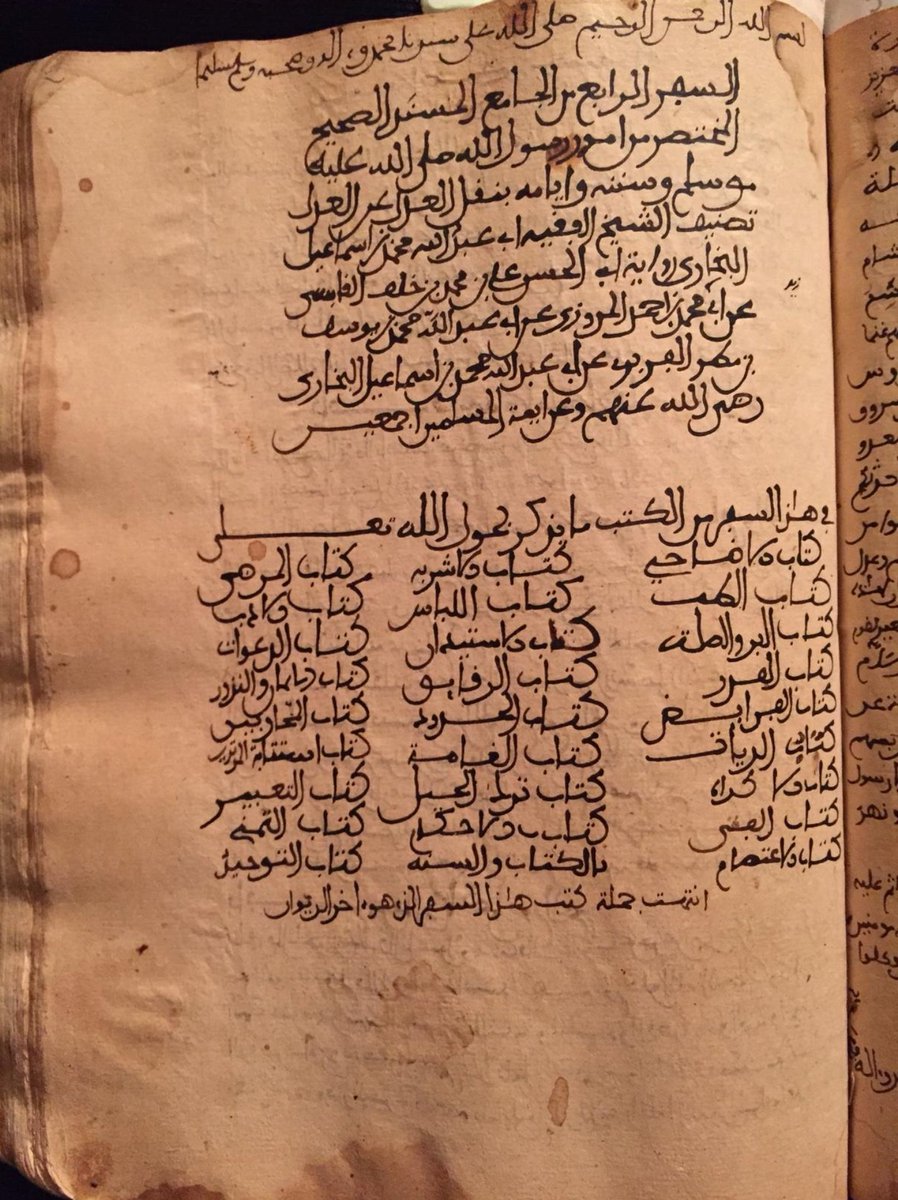 بسم الله الرحمن الرحيم صلى الله على سيدنا محمد وءاله وصحبه وسلم تسليما
السفر الرابع من الجامع المسند الصحيح
المختصر من امور رسول الله صلى الله عليه
وسلم وسننه وايامه بنقل العدل عن العدل
تصنيف الشيخ الفقيه ابي عبد الله محمد بن اسماعيل
البخاري رواية ابي الحسن علي بن محمد بن خلف القابسي
عن ابي محمد بن احمد المروزي عن ابي عبد الله محمد بن يوسف
بن مطر الفربري عن ابي عبد الله محمد بن اسماعيل البخاري
رضي الله عنهم وعن ايمة المسلمين اجمعين
في هذا السفر من الكتب ما يذكر بحول الله تعلى
كتاب الاضاحي كتاب الاشربه كتاب المرضى
كتاب الطب كتاب اللباس كتاب الادب
كتاب البر والصلة كتاب الاستيذان كتاب الدعوات
كتاب القدر كتاب الرقايق كتاب الايمان والنذور
كتاب الفرايض كتاب الحدود كتاب المحاربين
كتاب الديات كتاب القسامة كتاب استتابة المرتدين
كتاب الاكراه كتاب ترك الحيل كتاب التعبير
كتاب الفتن كتاب الاحكام كتاب التمني
كتاب الاعتصام بالكتاب والسنه كتاب التوحيد
انتهت جملة كتب هذا السفر الذي هو ءاخر الديوان